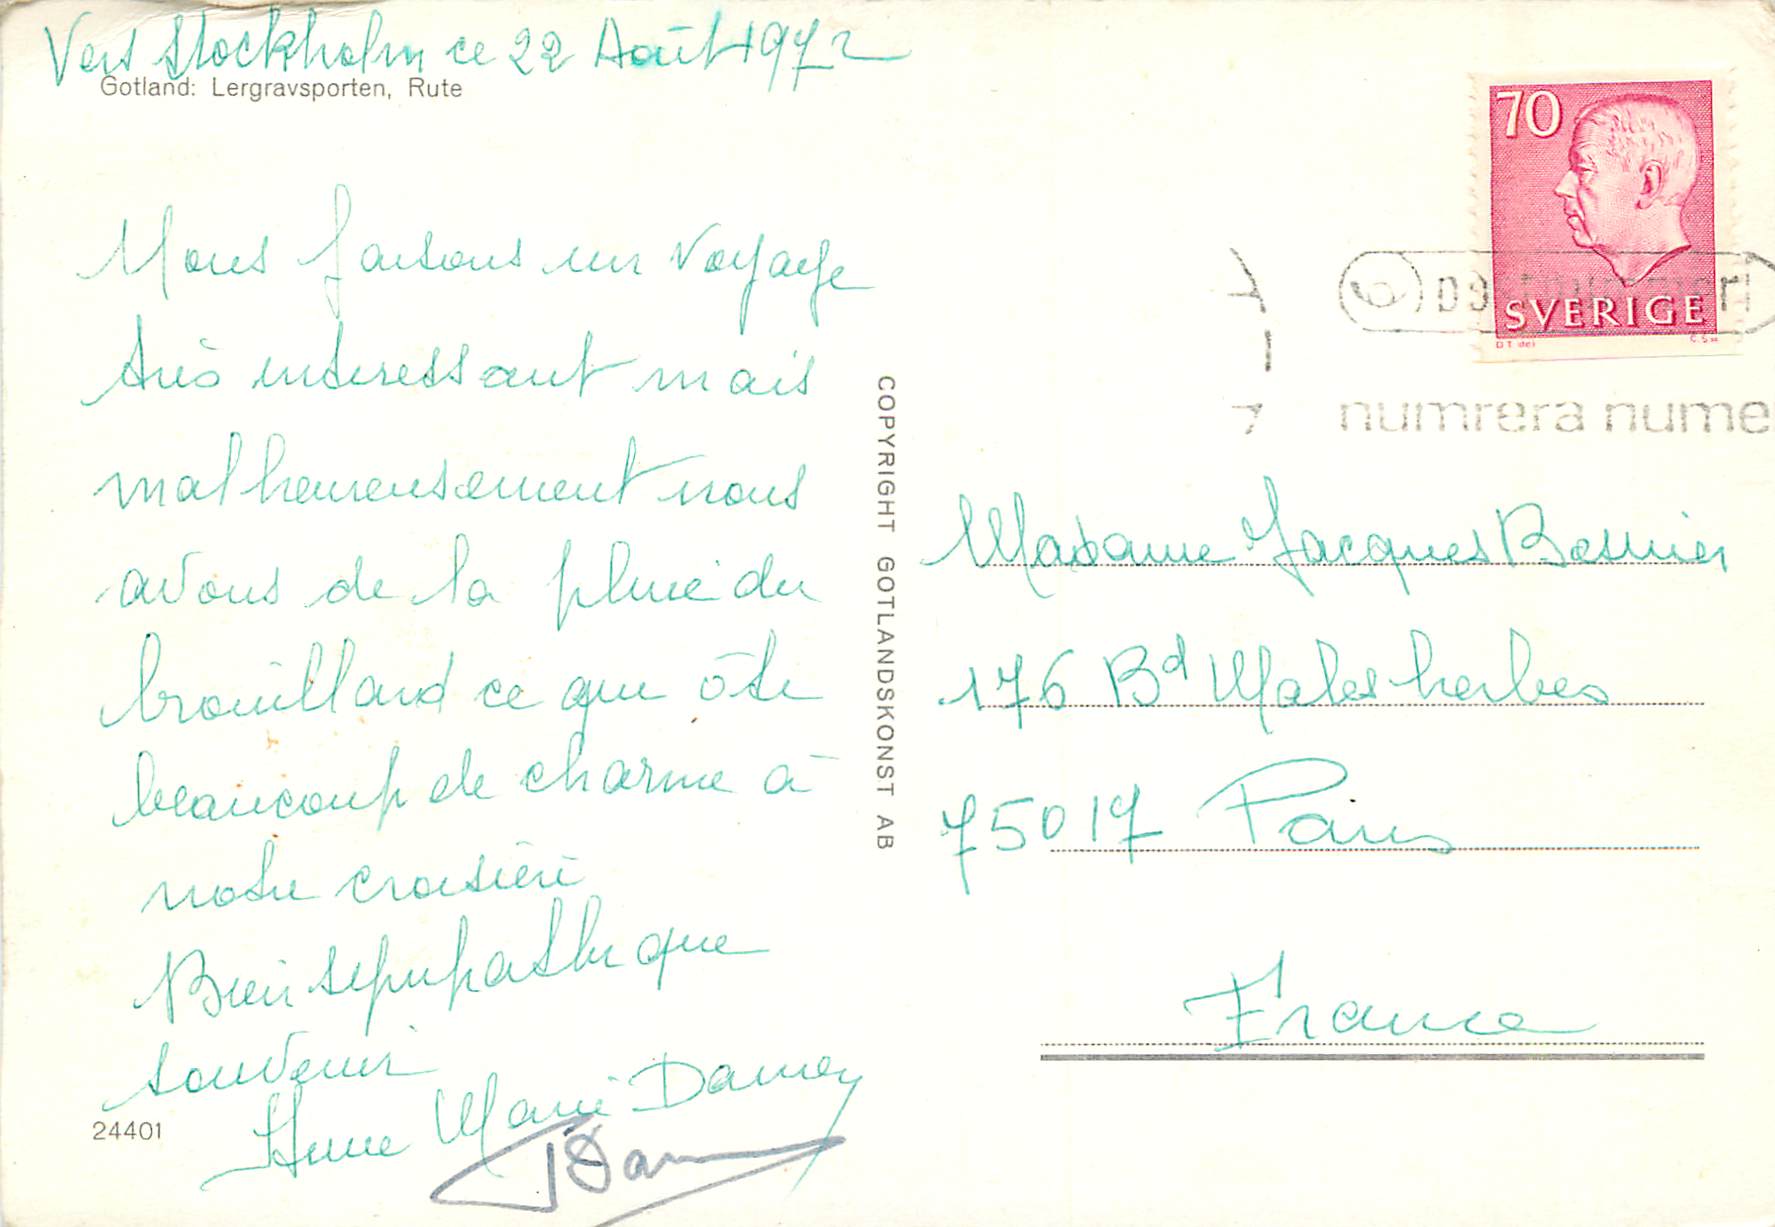 Vers Stockholm ce 22 Août 1972
Gotland: Lergravsporten, Rute
Nous faisons un voyage
très intéressant mais
malheureusement nous
avons de la pluie du
brouillard ce que ôte
beaucoup de charme à
notre croisière
Bien sympathique
souvenir
Anne Marie
24401
COPYRIGHT GOTLANDSKONST AB
70
SVERIGE
numrera nume
Madame Jacques Besnier
176 Bd Malesherbes
75017 Paris
France